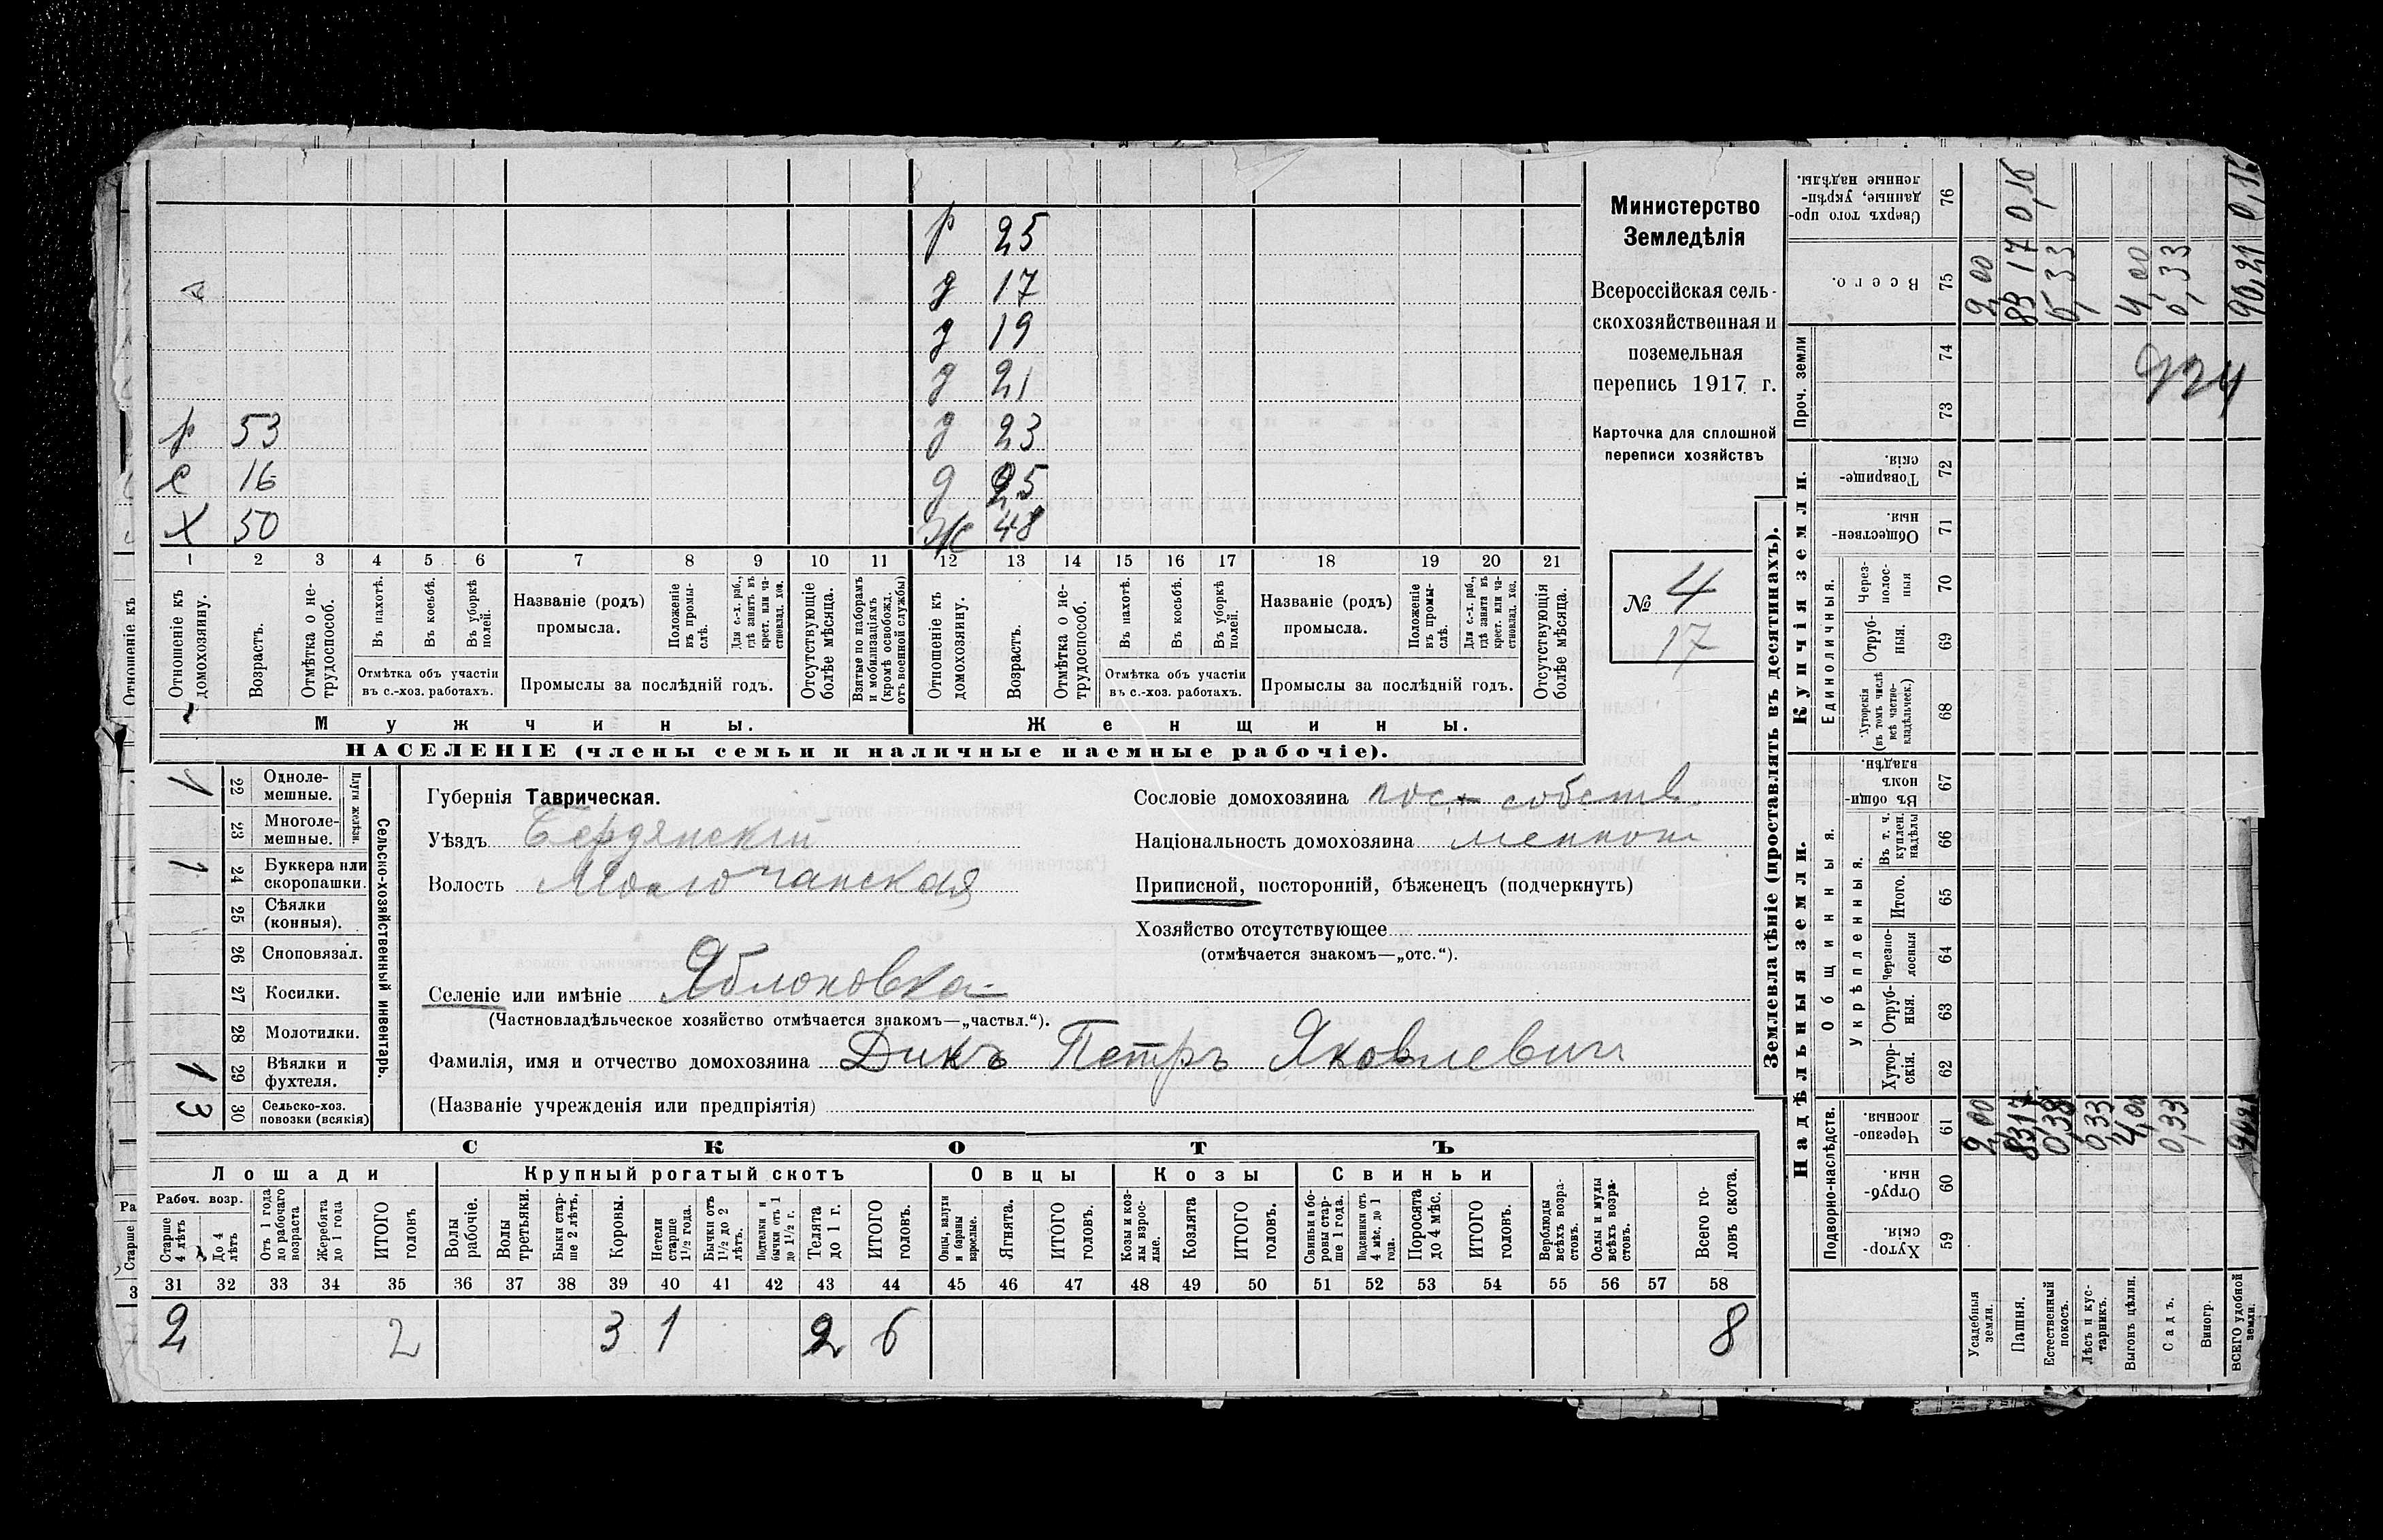 р 25
д 17
д 19
д 21
р 53 д 23
с 16 д 25
х 50 ж 48
1 2 3 4 5 6 7 8 9 10 11 12 13 14 15 16 17 18 19 20 21
Отношеніе къ домохозяину.
Возрастъ.
Отмѣтка о нетрудоспособ.
Въ пахотѣ.
Въ косьбѣ.
Въ уборкѣ полей.
Отмѣтка объ участіи
въ с.-хоз. работахъ.
Названіе (родъ)
промысла.
Положеніе въ промыслѣ.
Для с.-х. раб., гдѣ занятъ въ крест. или частновлад. хоз.
Промыслы за послѣдній годъ.
Отсутствующіе болѣе мѣсяца.
Взятые по наборамъ и мобилизаціямъ (кромѣ освобожд. отъ военной службы)
Отношеніе къ домохозяину.
Возрастъ.
Отмѣтка о нетрудоспособ.
Въ пахотѣ.
Въ косьбѣ.
Въ уборкѣ полей.
Отмѣтка объ участіи
въ с.-хоз. работахъ.
Названіе (родъ)
промысла.
Положеніе въ промыслѣ.
Для с.-х. раб., гдѣ занята въ крест. или частновлад. хоз.
Промыслы за послѣдній годъ.
Отсутствующія болѣе мѣсяца.
Мужчины. Женщины.
НАСЕЛЕНІЕ (члены семьи и наличные наемные рабочіе).
Министерство
Земледѣлія
Всероссійская сель-
скохозяйственная и
поземельная
перепись 1917 г.
Карточка для сплошной
переписи хозяйствъ
№ 4
17
Сельско-хозяйственный инвентарь.
Плуги желѣзн.
1 22 Одноле-
мешные.
23 Многоле-
мешные.
1 24 Буккера или
скоропашки.
25 Сѣялки
(конныя).
26 Сноповязал.
27 Косилки.
28 Молотилки.
1 29 Вѣялки и
фухтеля.
3 30 Сельско-хоз.
повозки (всякія)
Губернія Таврическая.
Уѣздъ Бердянскій
Волость Молочанская
Селеніе или имѣніе Яблоновка
(Частновладѣльческое хозяйство отмѣчается знакомъ—„частвл.“).
Фамилія, имя и отчество домохозяина Дикъ Петръ Яковлевич
(Названіе учрежденія или предпріятія)
Сословіе домохозяина пос. собств.
Національность домохозяина меннонит
Приписной, посторонній, бѣженецъ (подчеркнуть)
Хозяйство отсутствующее
(отмѣчается знакомъ—„отс.“).
СКОТЪ
Лошади Крупный рогатый скотъ Овцы Козы Свиньи
Рабоч. возр.
Старше 4 лѣтъ
До 4 лѣтъ
Отъ 1 года до рабочаго возраста
Жеребята до 1 года
ИТОГО головъ
Волы рабочіе.
Волы третьяки.
Быки старше 2 лѣтъ.
Коровы.
Нетели старше 1½ года.
Бычки отъ 1½ до 2 лѣтъ.
Подтелки и бычки отъ 1 до 1½ г.
Телята до 1 г.
ИТОГО головъ.
Овцы, валухи и бараны взрослые.
Ягнята.
ИТОГО головъ.
Козы и козлы взрослые.
Козлята
ИТОГО головъ.
Свиньи и боровы старше 1 года.
Подсвинки отъ 4 мѣс. до 1 года.
Поросята до 4 мѣс.
ИТОГО головъ.
Верблюды всѣхъ возрастовъ.
Ослы и мулы всѣхъ возрастовъ.
Всего головъ скота.
31 32 33 34 35 36 37 38 39 40 41 42 43 44 45 46 47 48 49 50 51 52 53 54 55 56 57 58
2 2 3 1 2 6 8
Землевладѣніе (проставлять въ десятинахъ).
Надѣльныя земли. Купчія земли. Проч. земли
Подворно-наслѣдств.
Общинныя.
Укрѣпленныя.
Единоличныя.
59 Хуторскія.
60 Отрубныя.
61 Черезполосныя.
62 Хуторскія.
63 Отрубныя.
64 Черезполосныя
65 Итого.
66 Въ т. ч. куплен. надѣлы
67 Въ общинномъ владѣн.
68 Хуторскія (въ томъ числѣ всѣ частновладѣльческ.)
69 Отрубныя.
70 Черезполосныя
71 Общественныя.
72 Товарищескія.
73
74
75 Всего.
76 Сверхъ того проданные, укрѣпленные надѣлы.
Усадебныя земли. 2,00 2,00
Пашня. 83 17 83 17 0,16
Естественный покосъ. 0,38
Лѣсъ и кустарникъ. 0,33
Выгонъ цѣлин. 4,00 4,00
Садъ. 0,33 0,33
Виногр.
ВСЕГО удобной земли. 90,21 90,21 0,16
924